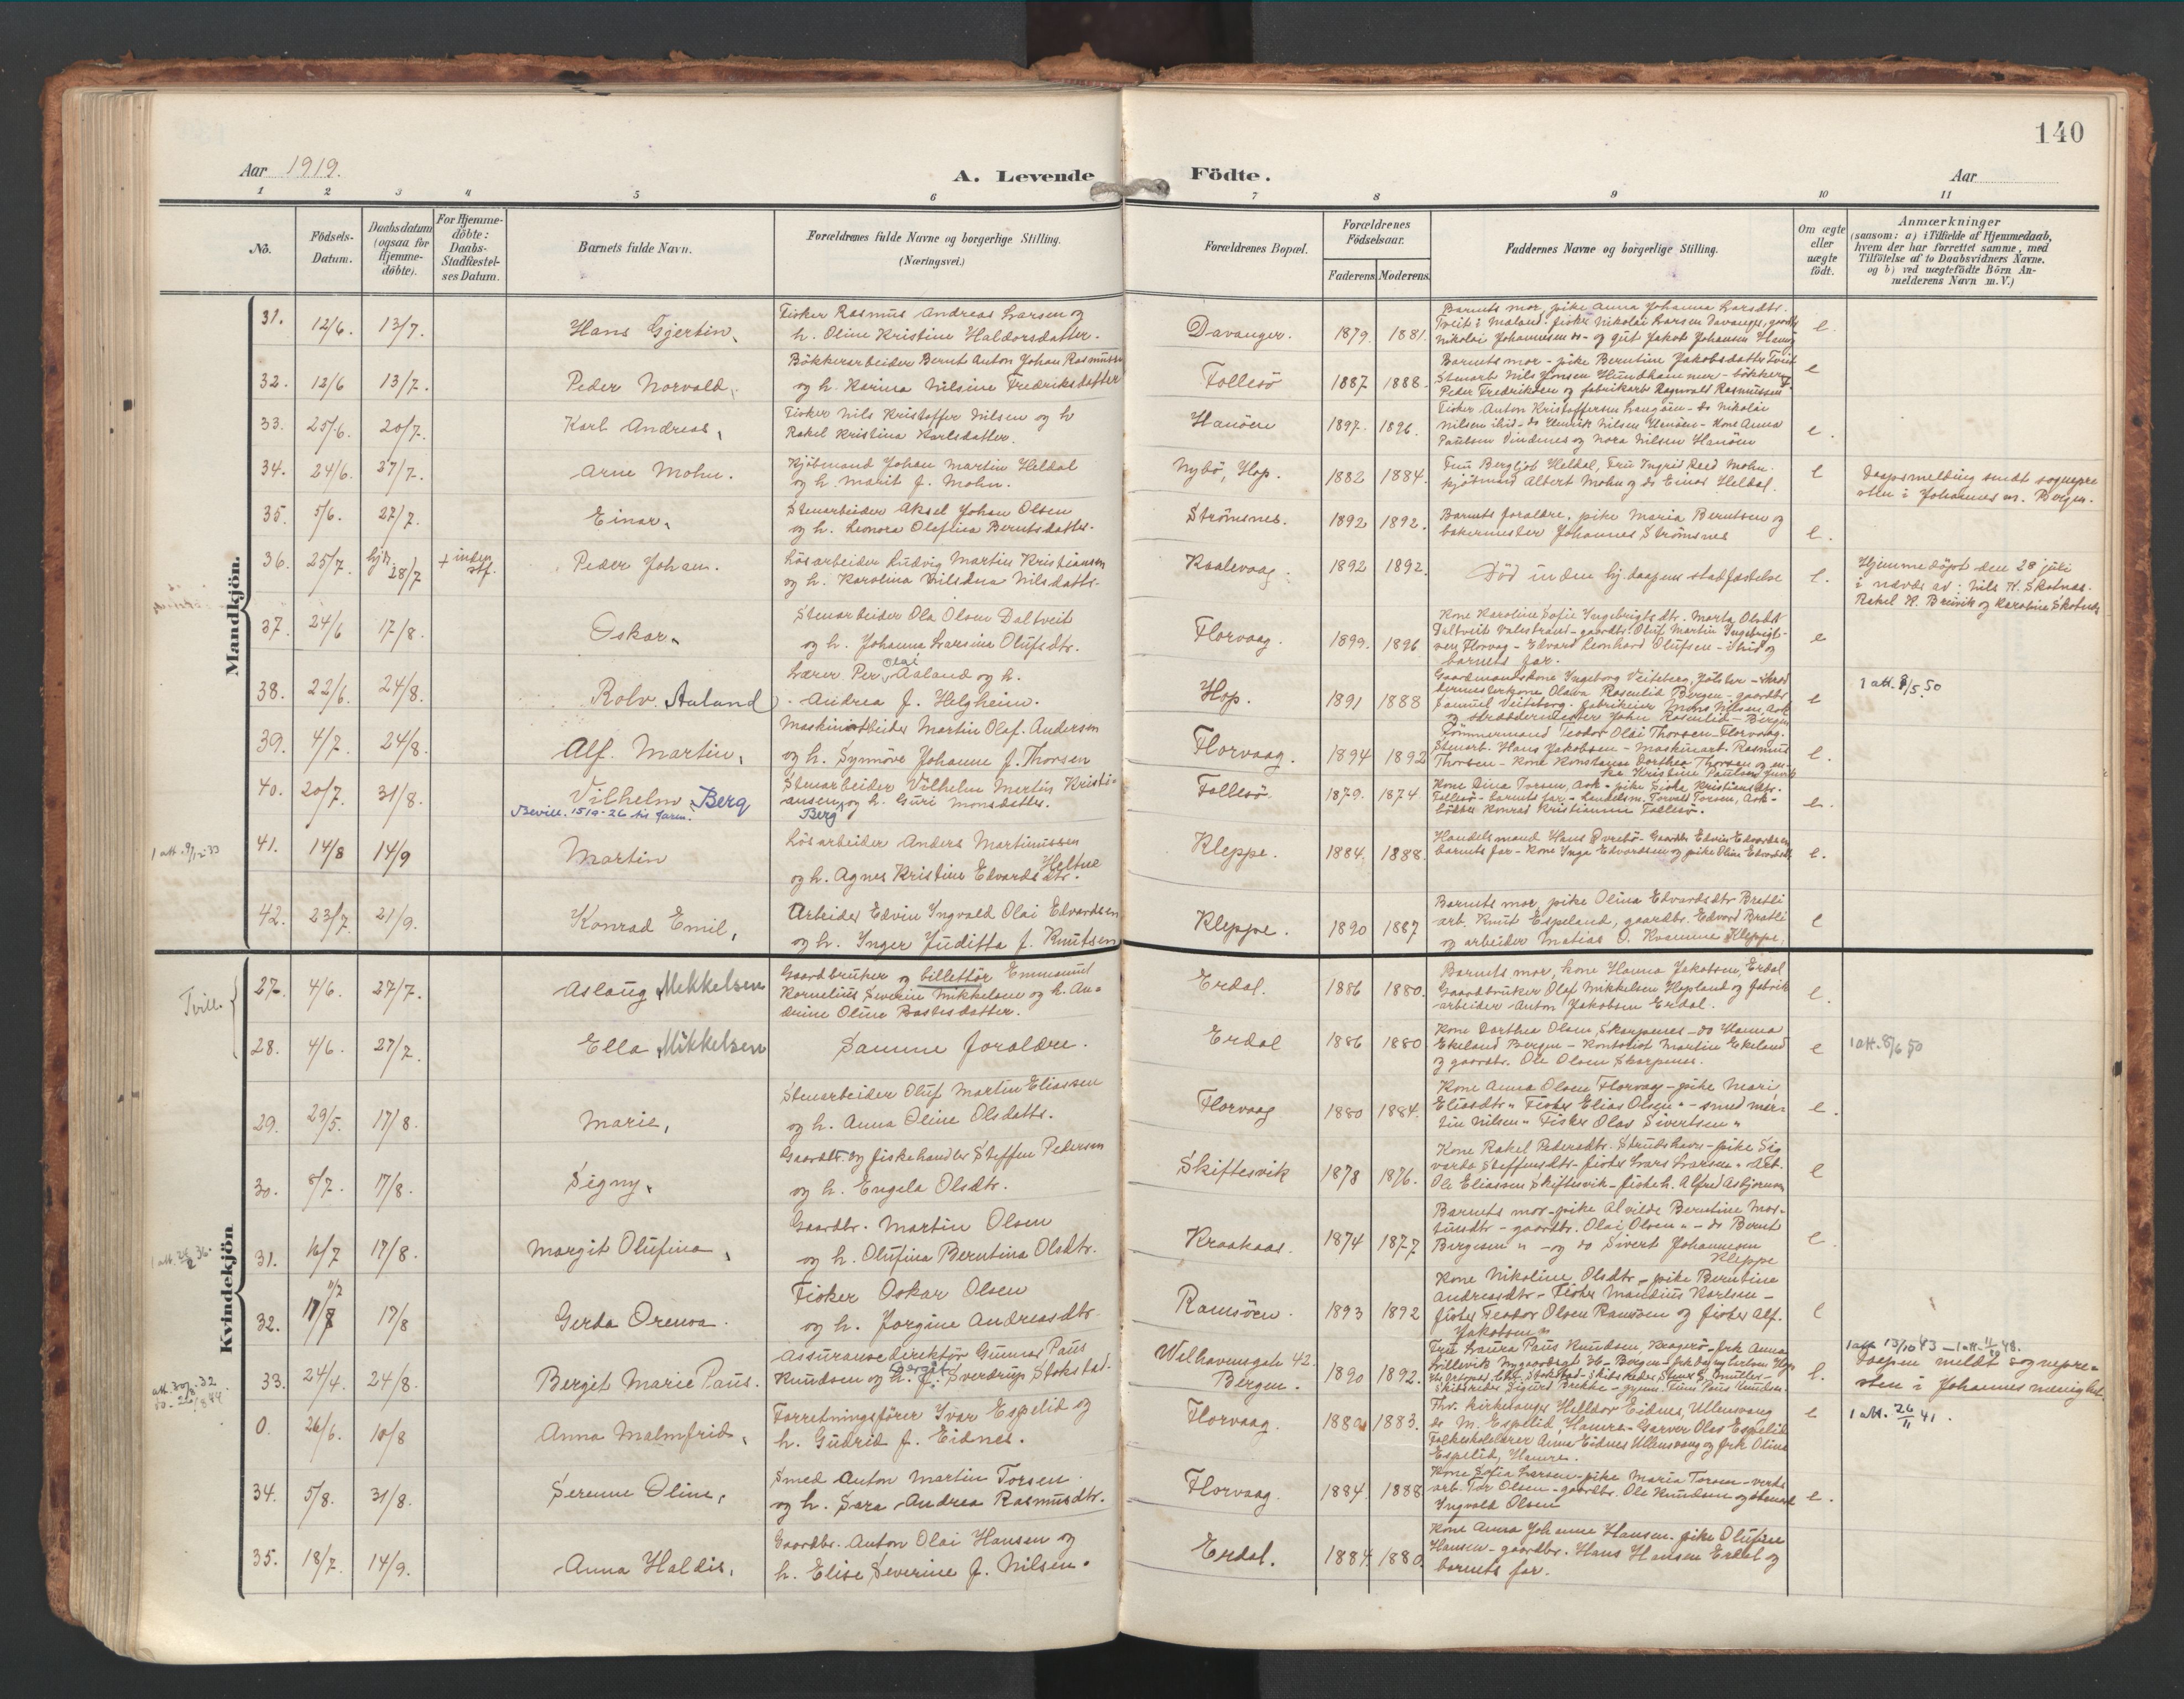 140
Aar 1919.
A. Levende Födte.
Aar
1 2 3 4 5 6 7 8 9 10 11
No.
Födsels-Datum.
Daabsdatum (ogsaa for Hjemme-döbte).
For Hjemme-döbte: Daabs-Stadfæstel-ses Datum.
Barnets fulde Navn.
Forældrenes fulde Navne og borgerlige Stilling.
(Næringsvei.)
Forældrenes Bopæl.
Forældrenes Födselsaar.
Faderens Moderens
Faddernes Navne og borgerlige Stilling.
Om ægte eller uægte födt.
Anmærkninger
(saasom: a) i Tilfælde af Hjemmedaab, hvem der har forrettet samme, med Tilföielse af to Daabsvidners Navne. og b) ved uægtefödte Börn An-melderens Navn m. V.)
Mandkjön.
31. 12/6. 13/7. Hans Gjertin.
Fisker Rasmus Andreas Larsen og
h. Oline Kristine Haldorsdatter.
Davanger. 1879. 1881.
Barnets mor, pike Anna Johanna Larsdtr.
Tveit i Maland. fisker Nikolai Larsen Davanger, gaardb
Nikolai Johannesen do - og gut Jakob Johansen Haug
e.
32. 12/6 13/7. Peder Norvald.
Bökkerarbeider Bernt Anton Johan Rasmussen
og h. Karina Nilsine Fredriksdatter
Follesö 1887 1888.
Barnets mor - pike Berntine Jakobsdatter Tveit
Stenarb Nils Jonsen Hundhammer - bökker
Peder Fredriksen og fabrikarb Ragnvald Rasmussen
e
33. 25/6. 20/7. Karl Andreas,
Fisker Nils Kristoffer Nilsen og h
Rakel Kristina Karlsdatter.
Hanöen 1897. 1896.
Fisker Anton Kristoffersen Langöen - do Nikolai
Nilsen ibid - do Henrik Nilsen Hanöen - Kone Anna
Paulsen Vindenes og Nora Nilsen Hanöen
e.
34. 24/6. 27/7. Arne Mohn.
Kjöbmand Johan Martin Heldal
og h. Marit f. Mohn.
Nybö, Hop. 1882 1884.
Fru Bergljot Heldal, Fru Ingrid Reed Mohn.
Kjöbmand Albert Mohn og do Einar Heldal.
e
Daapsmelding sendt sognepre
sten i Johannes m. Bergen.
35. 5/6. 27/7. Einar,
Stenarbeider Aksel Johan Olsen
og h. Leonora Olufina Berntsdatter.
Strömsnes. 1892 1892.
Barnets foraldre, pike Maria Berntsen og
bakermester Johannes Strömsnes
e.
36. 25/7. hjd. 28/7 + inden stf. Peder Johan.
Lösarbeider Ludvig Martin Kristiansen
og h. Karolina Nilsdna Nilsdattr.
Kaalevaag. 1892 1892.
Död inden hj. daapens stadfæstelse
e.
Hjemmedöpt den 28 juli
i nævær av: Nils H. Skotnes.
Rakel K. Breivik og Karoline Skotnes
37. 24/6 17/8. Oskar,
Stenarbeider Ola Olsen Daltveit
og h. Johanna Larsine Olufsdtr.
Florvaag. 1899. 1896
Kone Karoline Sofie Ingebrigtsdtr. Marta Olsdtr
Daltveit Valestrand - gaardbr. Oluf Martin Ingebrigt-
sen Florvag - Edvard Leonhard Olufsen - ibid og
barnets far.
e
38. 22/6. 24/8. Rolv Aaland
Lærer Per Olai Aaland og h.
Andrea J. Helgheim.
Hop. 1891 1888
Gaardmandskone Ingeborg Veiteberg, Jölster - skræd
dermesterkone Olava Rosenlid Bergen - gaardbr
Samuel Veiteberg. fabrikeier Mons Nilsen, Ask
og skræddermester John Rosenlid - Bergen
e
1 att. 8/5.50
39. 4/7. 24/8. Alf. Martin,
Maskinarbeider Martin Olaf Anderson
og h. Synnöve Johanne f. Thorsen
Florvaag. 1894 1892
Tömmermand Teodor Olai Thorsen - Florvaag.
Stenarb. Hans Jakobsen - Maskinarb. Rasmus
Thorsen - kone Konstanse Dorthea Thorsen og en-
ke Kristine Paulsen
e.
40. 20/7. 31/8. Vilhelm Berg
Bevill. 15/9-26 til faren.
Stenarbeider Vilhelm Martin Kristi-
ansen Berg og h. Guri Monsdatter.
Follesö 1879. 1874
Kone Dina Torsen, Ask - pike Siska Kristiansdtr.
Follesö - barnets far - Landelsm. Torvald Torsen, Ask -
bökker Konrad Kristiansen Follesö.
e.
1 att. 9/12.33
41. 14/8 14/9 Martin
Lösarbeider Anders Martinussen
Heltne
og h. Agnes Kristine Edvardsdtr.
Kleppe. 1884. 1888.
Handelsmand Hans Övrebö - Gaardbr Edvin Edvardsen
barnets far - kone Inga Edvardsen og pike Oline Edvardsdtr
e.
42. 23/7. 21/9. Konrad Emil,
Arbeider Edvin Ingvald Olai Edvardsen
og h. Inger Juditta f. Knutsen
Kleppe. 1890 1887
Barnets mor, pike Olina Edvardsdtr Bratli
arb. Knut Espeland, gaardbr. Edvard Bratli
og arbeider Matias O. Kvamme Kleppe.
e
Kvindekjön
Tvill.
27. 4/6. 27/7. Aslaug Mikkelsen
Gaardbruker og billettör Emmanuel
Kornelius Severin Mikkelsen og h. An-
deine Oline Bastesdatter.
Erdal. 1886 1880.
Barnets mor, kone Hanna Jakobsen, Erdal
Gaardbruker Olaf Mikkelsen Hopland og fabrik
arbeider Anton Jakobsen Erdal.
e.
28. 4/6. 27/7. Ella Mikkelsen
Samme foraldre.
Erdal 1886 1880
Kone Dorthea Olsen, Skarpenes - do Hanna
Ekeland Bergen - Kontorist Martin Ekeland
og gaardbr. Ole Olsen Skarpenes.
e
1 att. 8/6 50
29. 29/5. 17/8. Marie,
Stenarbeider Oluf Martin Eliassen
og h. Anna Oline Olsdattr.
Florvaag 1880 1884.
Kone Anna Olsen Florvaag - pike Mari
Eliasdtr " Fisker Elias Olsen " - smed Mar-
tin Nilsen " Fisker Olav Sivertsen "
e.
30. 8/7. 17/8. Signy,
Gaardbr. og fiskehandler Steffen Pedersen
og h. Engela Olsdtr.
Skiftesvik 1878 1876.
Kone Rakel Pedersdtr. Strudshavn - pike Sig
varda Steffensdtr - fisker Lars Larsen " Arb.
Ole Eliassen Skiftesvik - fiskeh. Alfred Asbjörnsen
e
1 att. 24/2 36.
31. 16/7 17/8. Margit Olufina,
Gaardbr. Martin Olsen
og h. Olufina Berntina Olsdtr.
Kraakaas. 1874 1877
Barnets mor - pike Alvilde Berntine Mar-
tinsdtr - gaardbr. Olai Olsen " - do Bernt
Bergesen " - og do Sivert Johannesen
Kleppe
e.
32. 11/7 17/8 Gerda Orensa.
Fisker Oskar Olsen
og h. Jorgine Andreasdtr.
Ramsöen. 1893 1892
Kone Nikoline Olsdtr - pike Berntine
Andreasdtr - Fisker Mandius Karlsen -
fisker Teodor Olsen Ramsöen og fisker Alf.
Jakobsen "
e
att. 30/8.32
33. 24/4. 24/8. Bergit Marie Paus.
Assuransedirektör Gunnar Paus
Knudsen og h. Bergit f. Sverdrup Stokstad.
Welhavensgate 42.
Bergen. 1890 1892.
Fru Laura Paus Knudsen, Kragerö - frk Anna
Skibsreder Sigurd Bakke - Finn Paus Knudsen
e.
1 att 13/10 43 - 1 att. 11/10 48.
Daapen meldt sognepre-
sten i Johannes menighet
0. 26/6. 10/8 Anna Malmfrid,
Forretningsförer Ivar Espelid og
h. Gudrid f. Eidnes.
Florvaag. 1880 1883.
Fhv. kirkesanger Halldor Eidnes, Ullensvang
do M. Espelid, Hamre - Garver Olav Espelid
Folkeskolelærer Anna Eidnes Ullensvang og frk Olina
Espelid, Hamre.
e
1 att. 26/11 41.
34. 5/8. 31/8. Serenne Oline,
Smed Anton Martin Torsen.
og h. Sara Andrea Rasmusdtr.
Florvaag. 1884. 1888
Kone Sofia Larsen - pike Maria Torsen - verks
arb. Tor Olsen - gaardbr. Ole Knudsen og stenarb
Ingvald Olsen
e.
35. 18/7. 14/9. Anna Haldis,
Gaardbr. Anton Olai Hansen og
h. Elise Severine f. Nilsen.
Erdal. 1884. 1880.
Kone Anna Johanne Hansen. pike Olufine
Hansen - gaardbr. Hans Hansen Erdal og
barnets far.